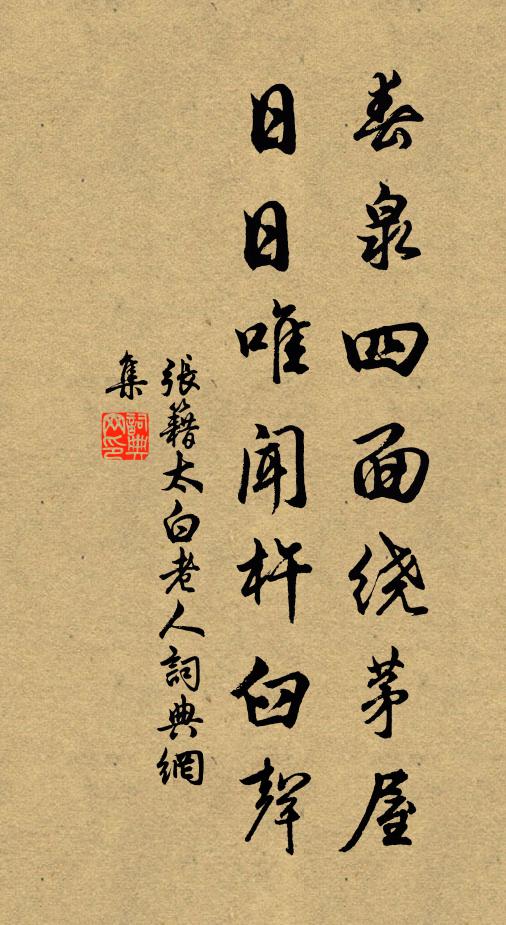 春泉四面绕茅屋
日日唯闻杵臼聲
張籍太白老人詞典網
集
詞典
网印